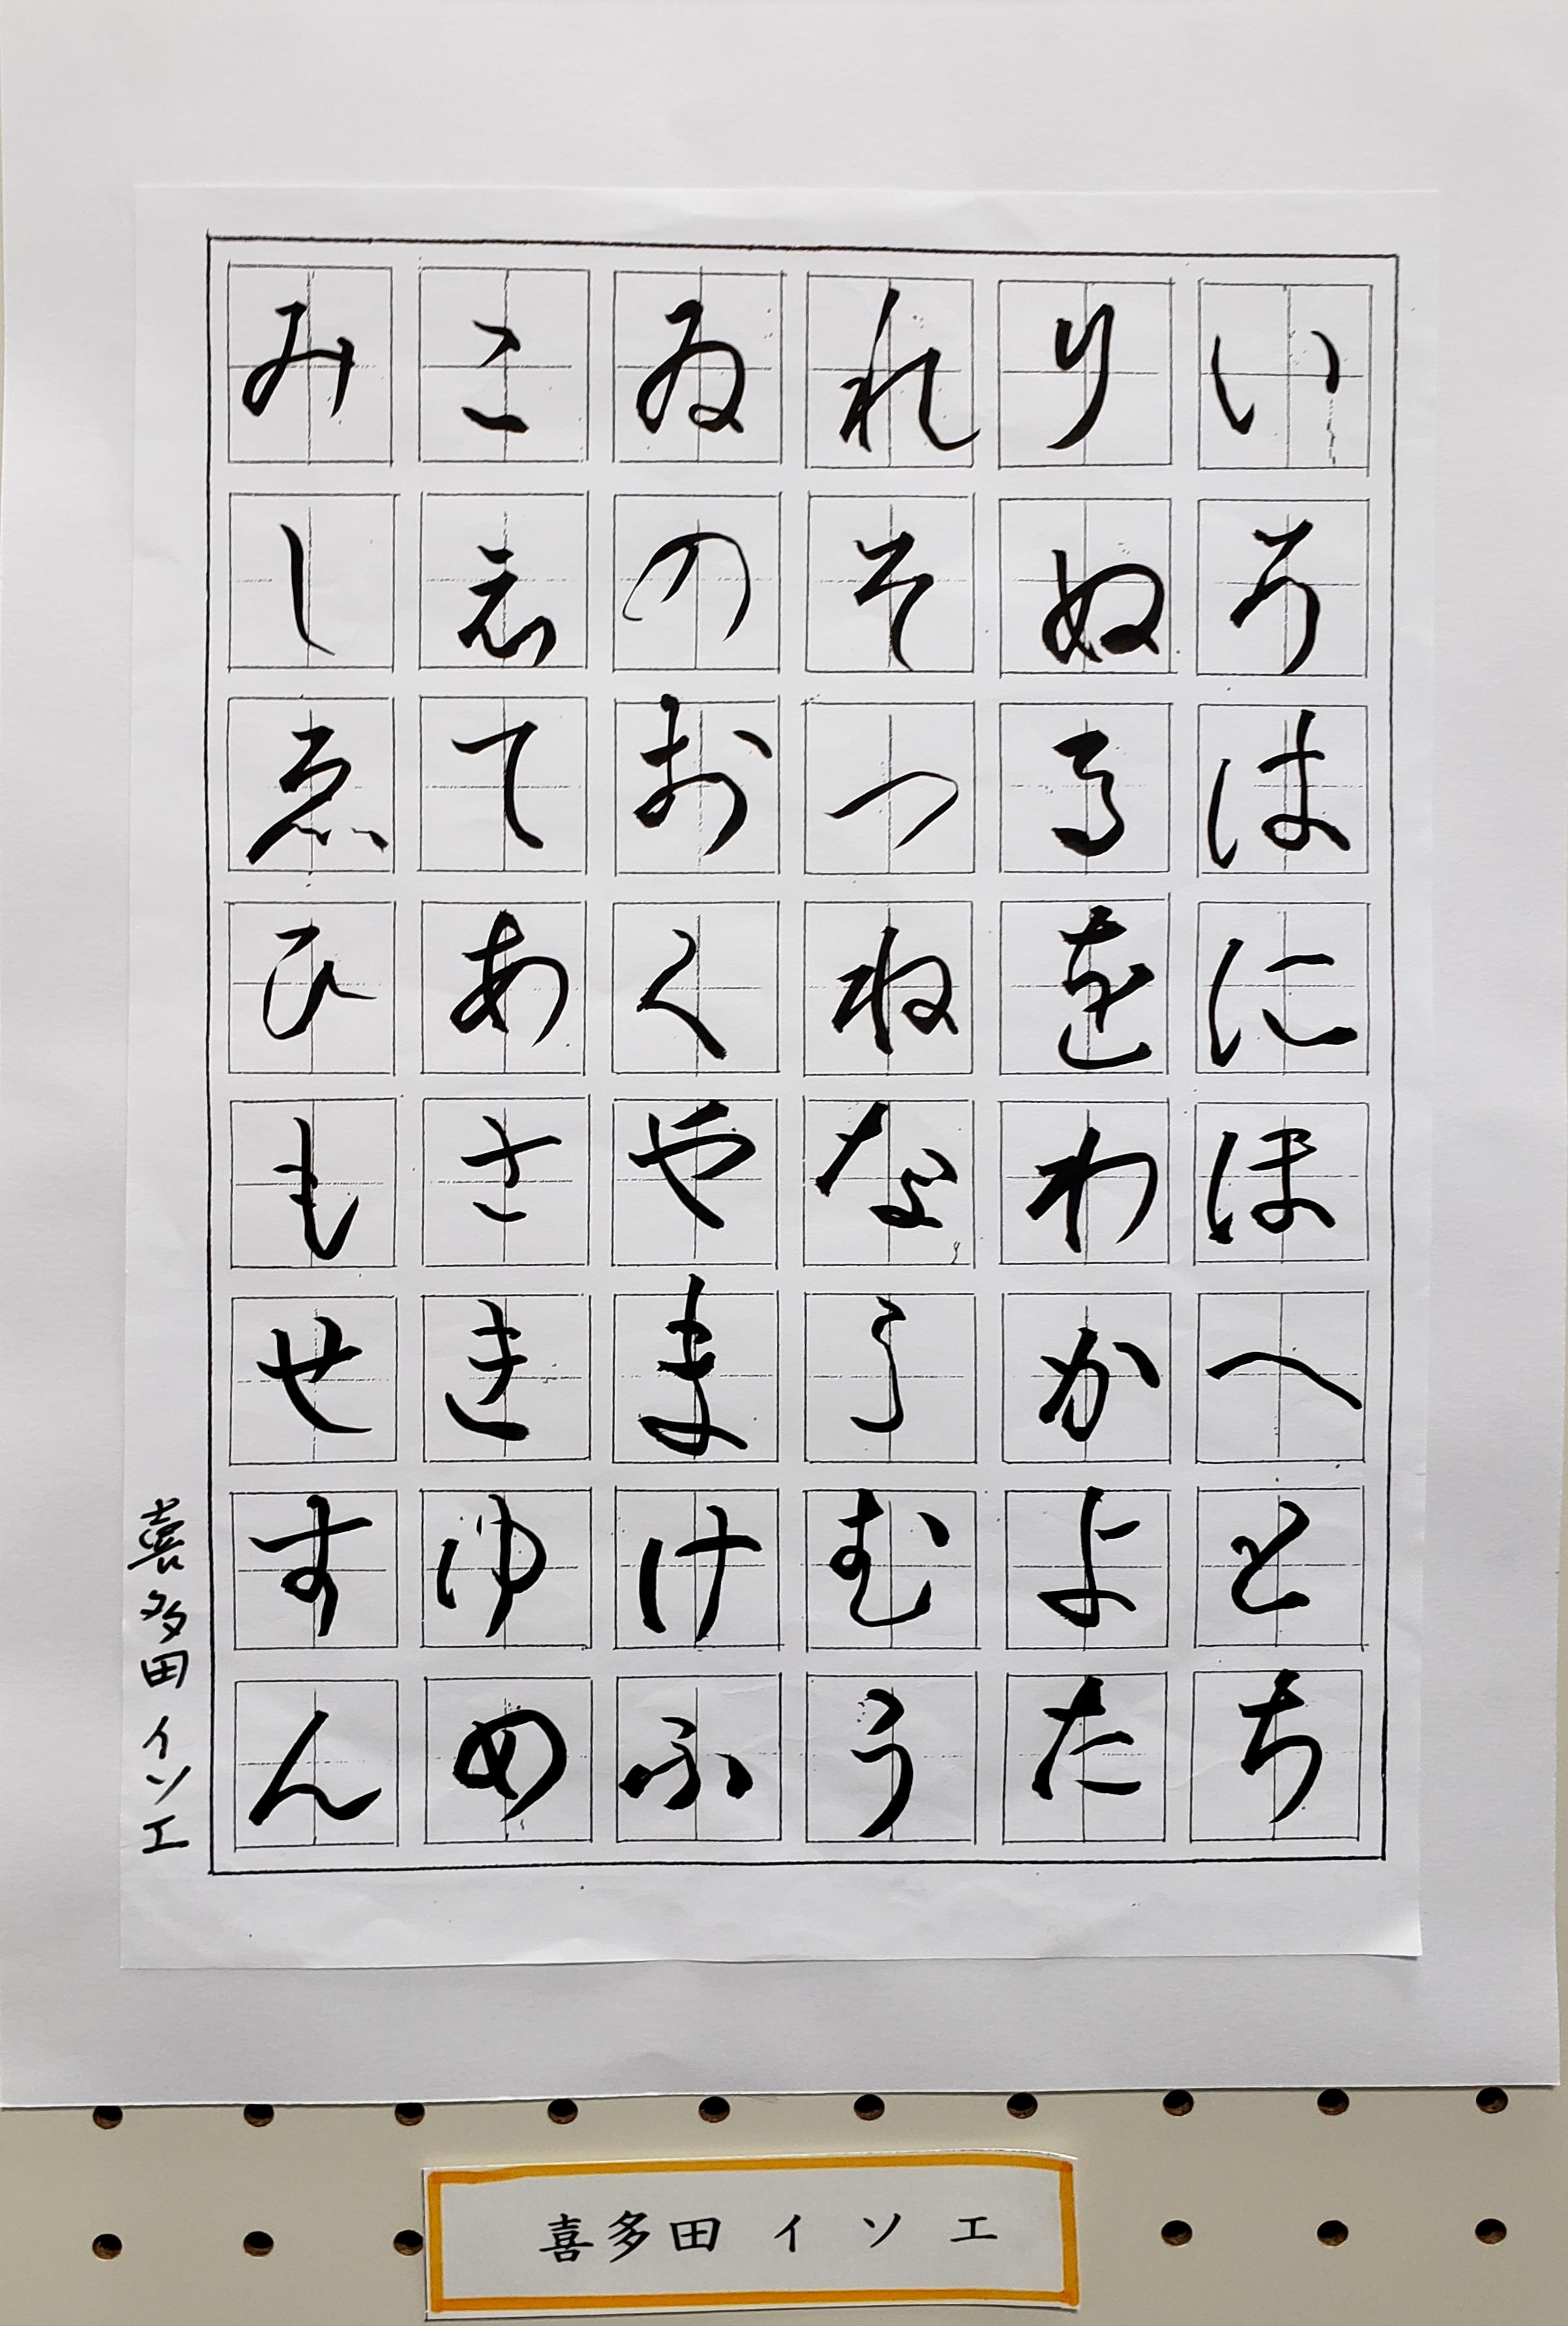 いろはにほへとち
りぬるをわかよた
れそつねならむう
ゐのおくやまけふ
こえてあさきゆめ
みしゑひもせすん
喜多田イソエ
喜多田 イソエ